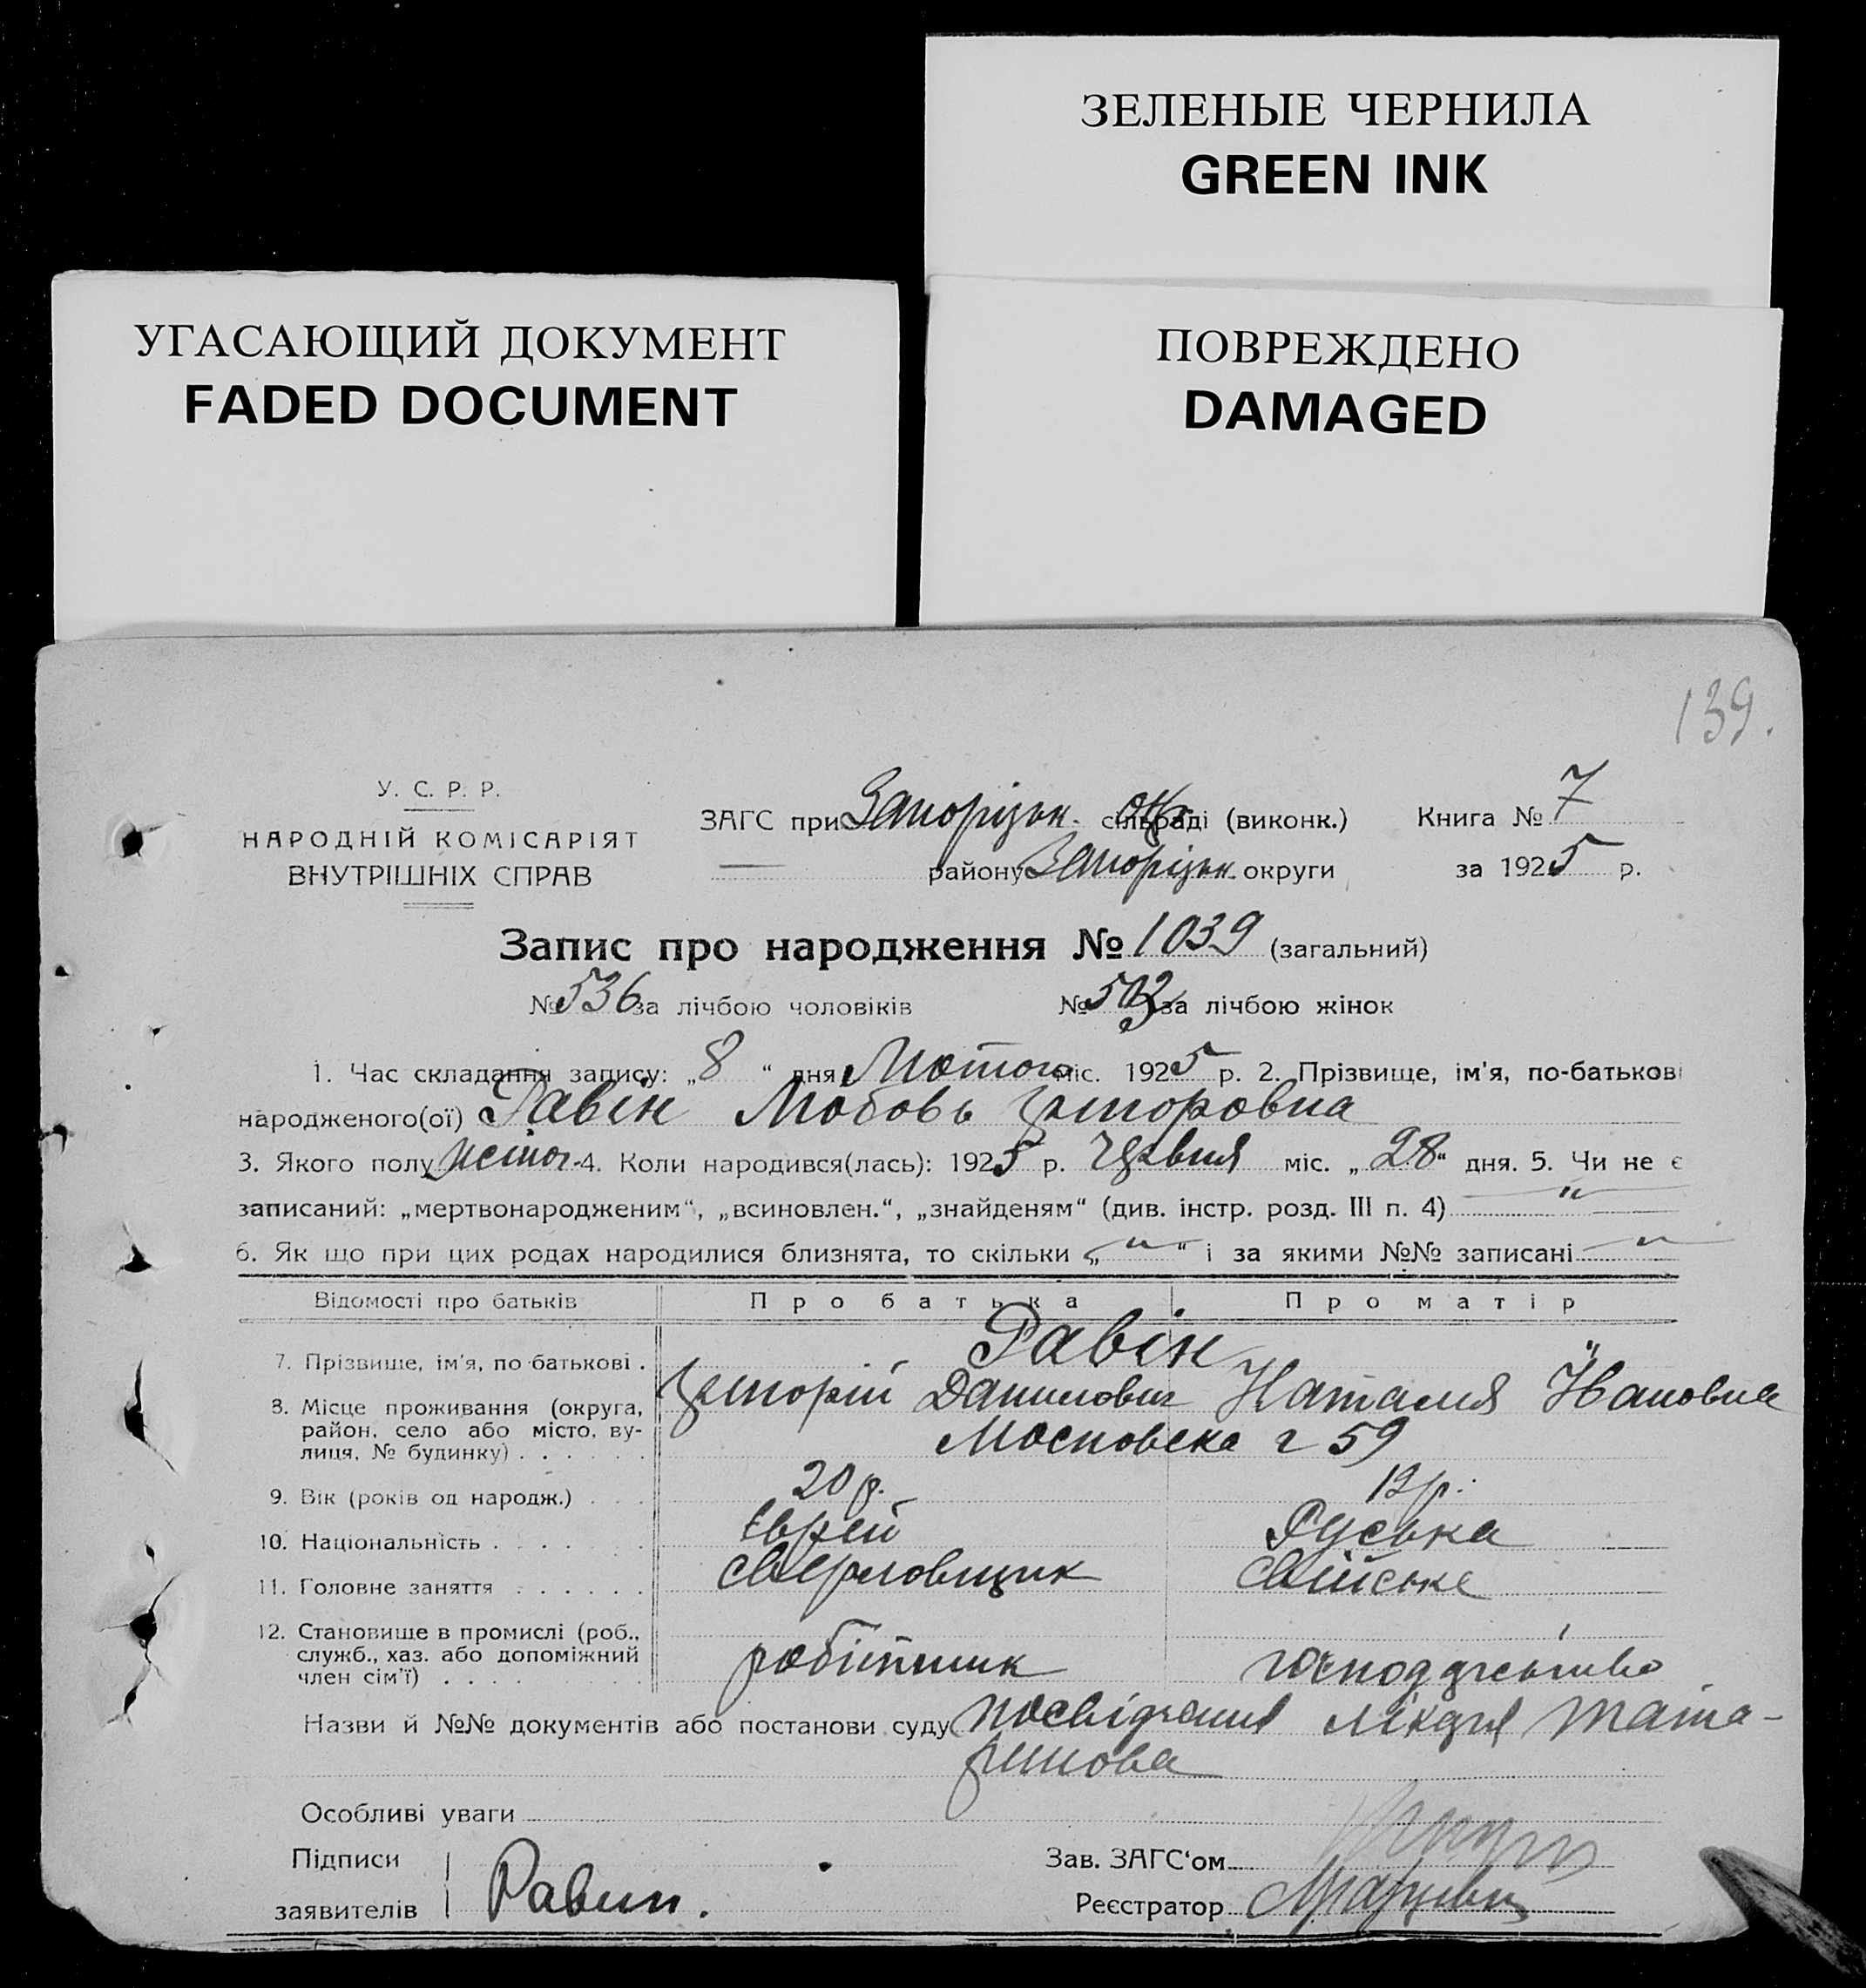 ЗЕЛЕНЫЕ ЧЕРНИЛА
GREEN INK
УГАСАЮЩИЙ ДОКУМЕНТ
FADED DOCUMENT
ПОВРЕЖДЕНО
DAMAGED
139.
У. С. Р. Р.
НАРОДНІЙ КОМІСАРІЯТ
ВНУТРІШНІХ СПРАВ
ЗАГС при Запорізьк. сільраді (виконк.) Книга № 7
району Запорізьк. округи за 1925 р.
Запис про народження № 1039 (загальний)
№ 536 за лічбою чоловіків № 503 за лічбою жінок
1. Час складання запису: „8“ дня Лютого міс. 1925 р. 2. Прізвище, ім'я, по-батькові
народженого(ої) Равін Любовь
3. Якого полу жіноч. 4. Коли народився(лась): 1925 р. Червня міс. „28“ дня. 5. Чи не є
записаний: „мертвонародженим“, „всиновлен.“, „знайденям“ (див. інстр. розд. III п. 4) — " —
6. Як що при цих родах народилися близнята, то скільки „ — " — “ і за якими №№ записані — " —
Відомості про батьків Про батька Про матір
7. Прізвище, ім'я, по-батькові . Равін
Данилович Наталія Івановна
8. Місце проживання (округа,
район, село або місто, ву-
лиця, № будинку) . . . . . . Московска 59
9. Вік (років од народж.) . . . 20 р. 19 р.
10. Національність . . . . . . Єврей Руська
11. Головне заняття . . . . . . сверловщик свійське
12. Становище в промислі (роб.,
служб., хаз. або допоміжний
член сім'ї) . . . . робітник господарство
Назви й №№ документів або постанови суду посвідчення лікаря Тата-
ринова
Особливі уваги
Підписи
заявителів Равин.
Зав. ЗАГС'ом
Реєстратор